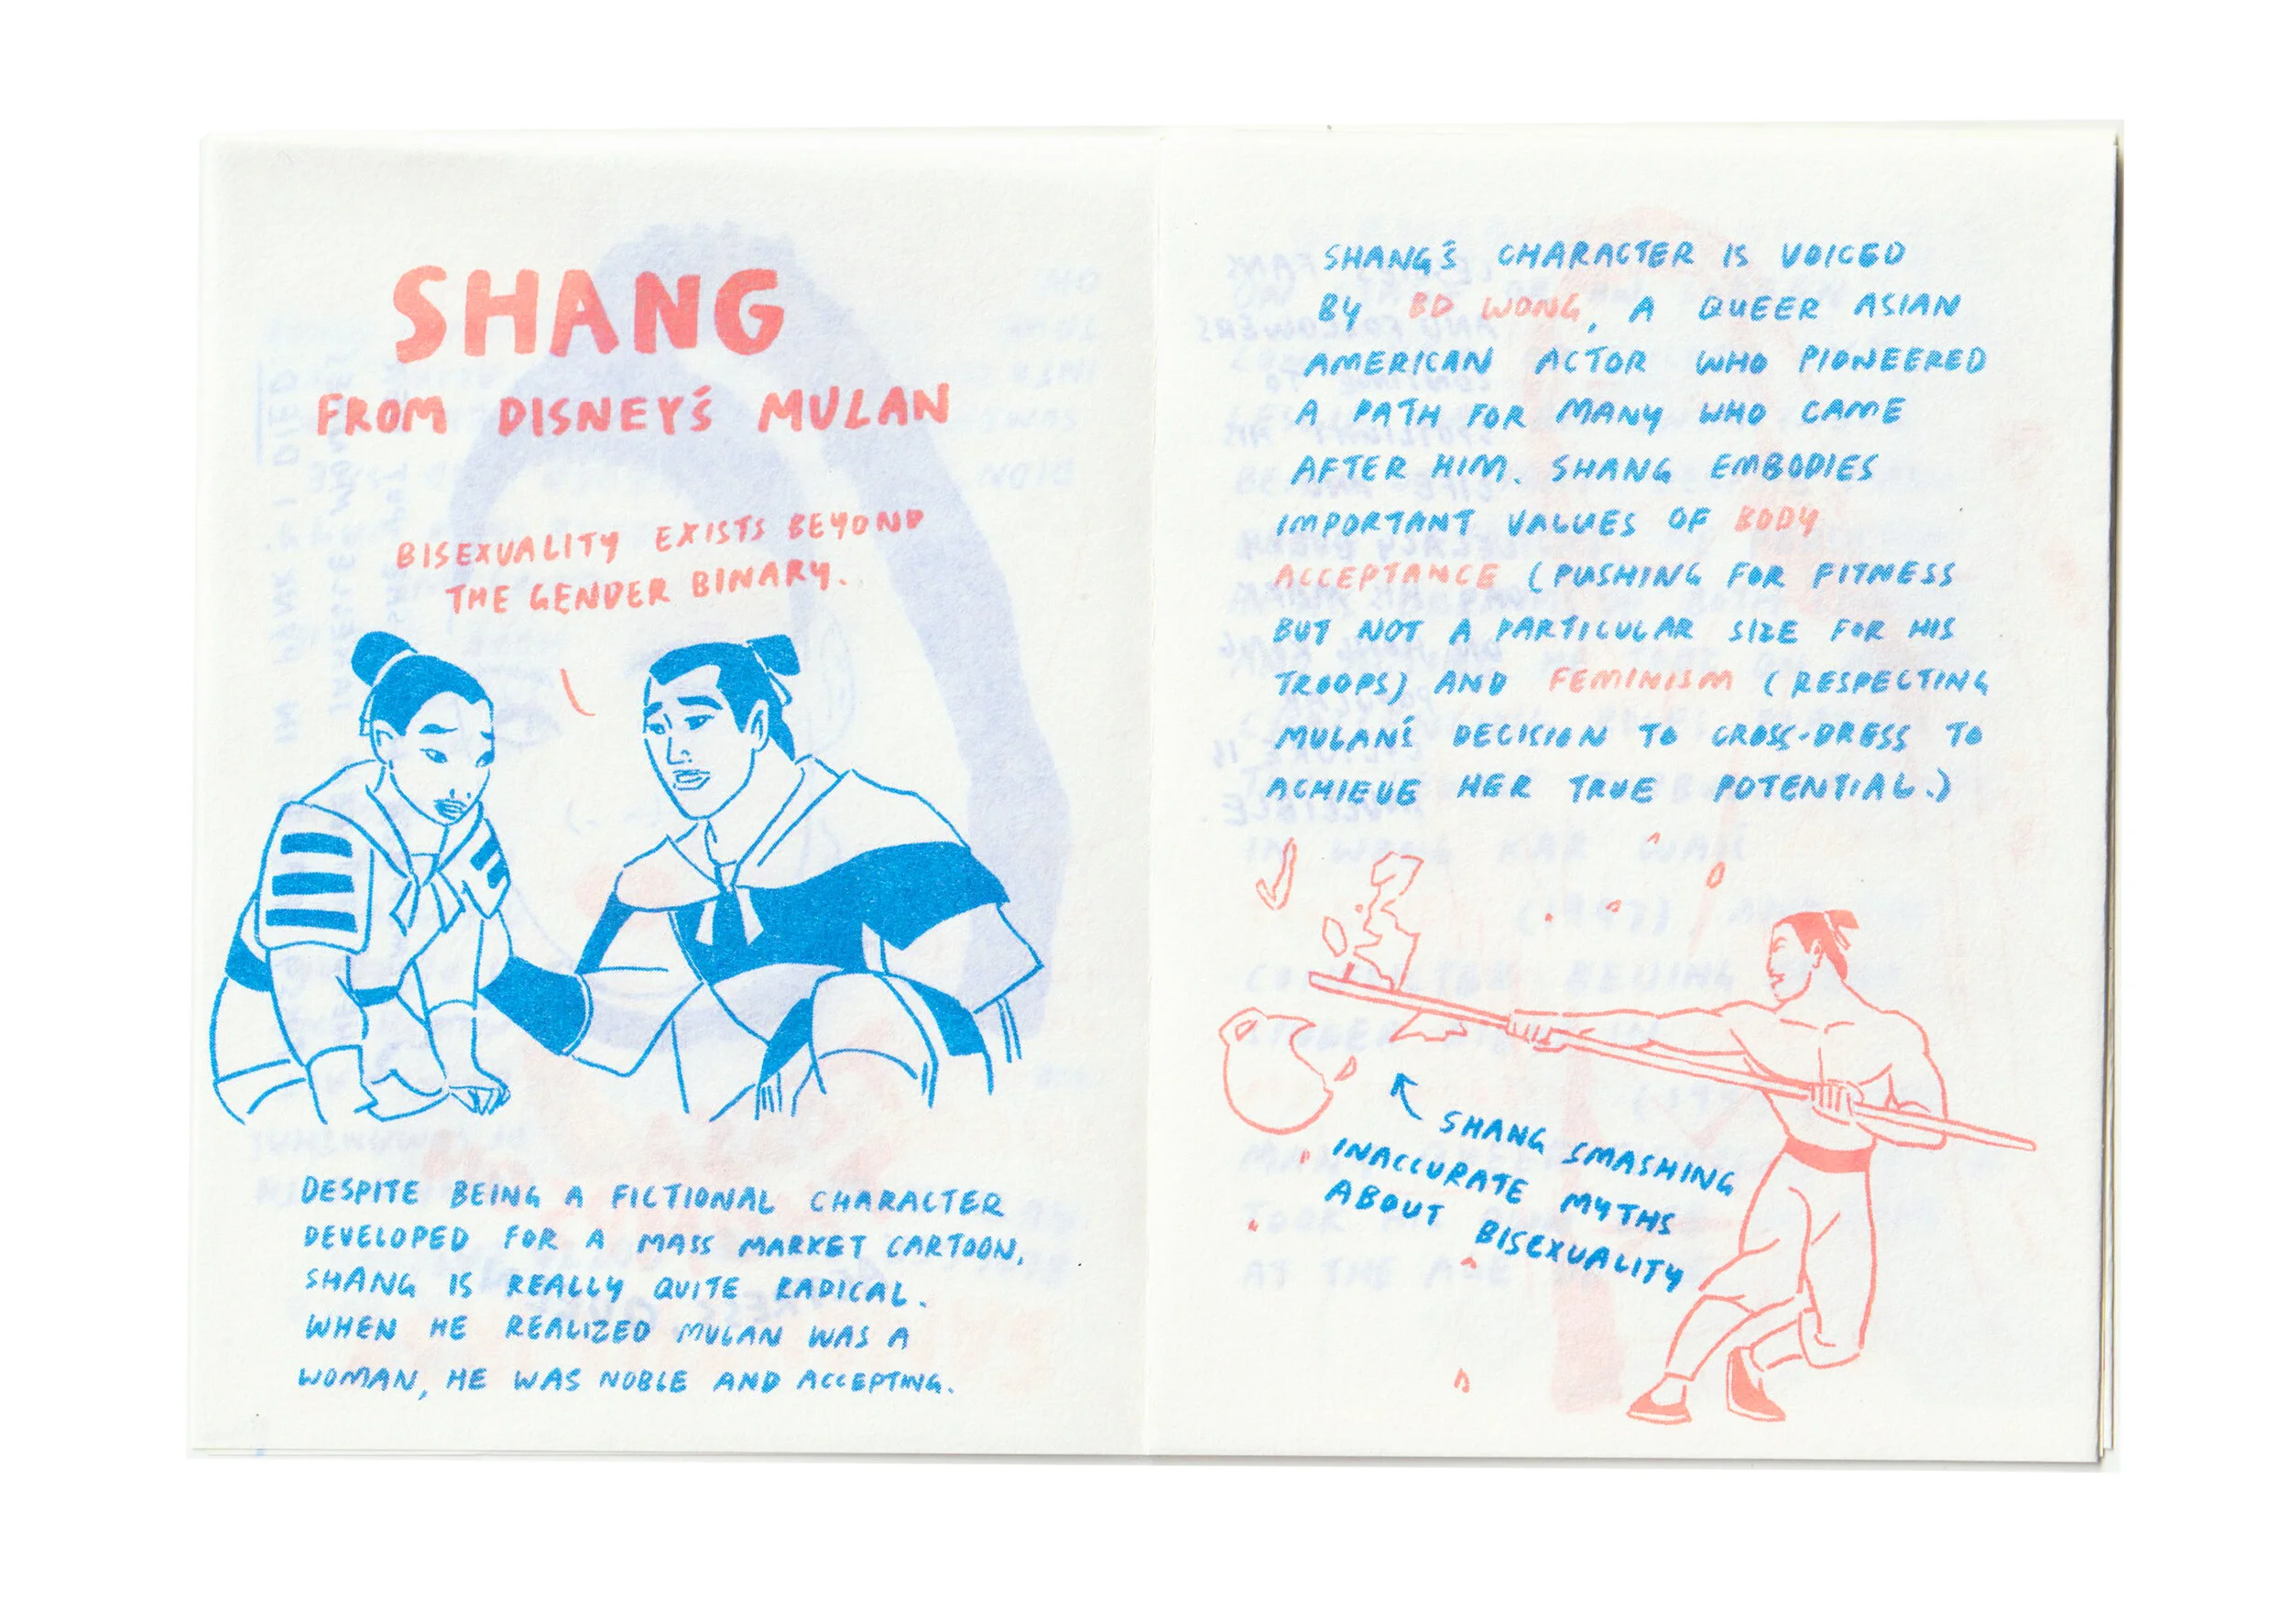 SHANG
FROM DISNEY'S MULAN
BISEXUALITY EXISTS BEYOND
THE GENDER BINARY.
DESPITE BEING A FICTIONAL CHARACTER
DEVELOPED FOR A MASS MARKET CARTOON,
SHANG IS REALLY QUITE RADICAL.
WHEN HE REALIZED MULAN WAS A
WOMAN, HE WAS NOBLE AND ACCEPTING.
SHANG'S CHARACTER IS VOICED
BY BD WONG, A QUEER ASIAN
AMERICAN ACTOR WHO PIONEERED
A PATH FOR MANY WHO CAME
AFTER HIM. SHANG EMBODIES
IMPORTANT VALUES OF BODY
ACCEPTANCE (PUSHING FOR FITNESS
BUT NOT A PARTICULAR SIZE FOR HIS
TROOPS) AND FEMINISM (RESPECTING
MULAN'S DECISION TO CROSS-DRESS TO
ACHIEVE HER TRUE POTENTIAL.)
SHANG SMASHING
INACCURATE MYTHS
ABOUT BISEXUALITY